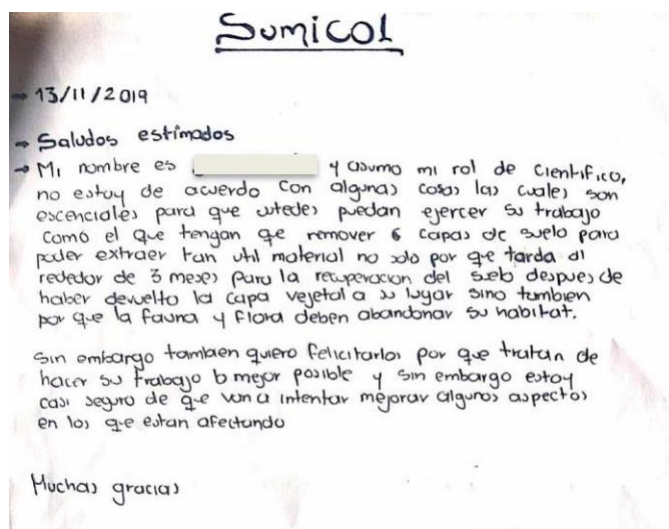 Sumicol
→ 13/11/2019
→ Saludos estimados
→ Mi nombre es y asumo mi rol de Cientifico,
no estoy de acuerdo con algunas cosas las cuales son
escenciales para que ustedes puedan ejercer su trabajo
como el que tengan qe remover 6 capas de suelo para
poder extraer tan util material no solo por qe tarda al
rededor de 3 meses para la recuperacion del suelo despues de
haber devuelto la capa vejetal a su lugar sino tambien
por que la fauna y flora deben abandonar su habitat.
Sin embargo tambien quiero felicitarlos por que tratan de
hacer su trabajo lo mejor posible y sin embargo estoy
casi seguro de que van a intentar mejorar algunos aspectos
en los qe estan afectando
Muchas gracias